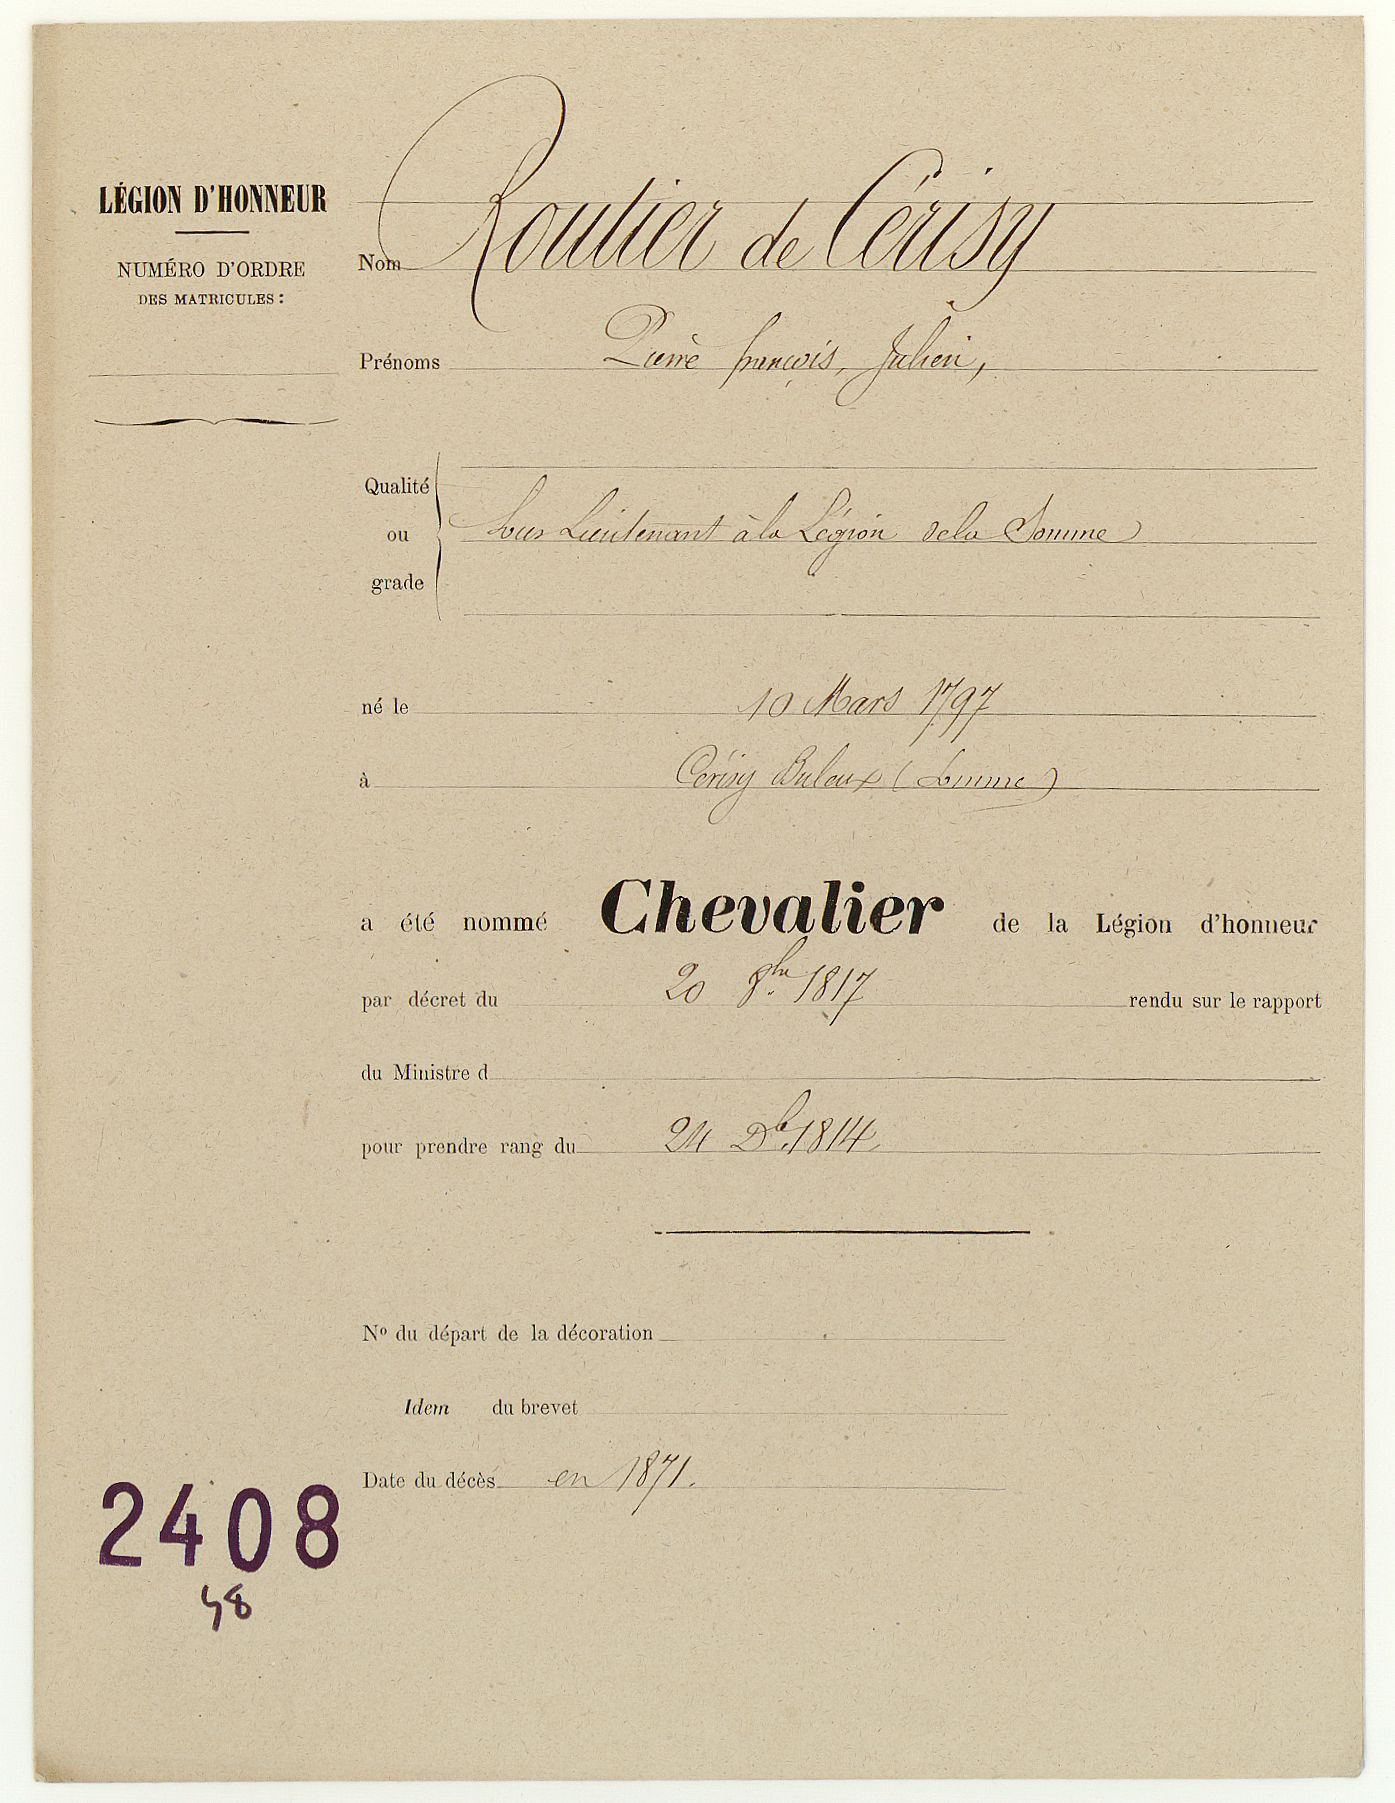 LÉGION D'HONNEUR
NUMÉRO D'ORDRE
DES MATRICULES :
Nom Routier de Cérisy
Prénoms Pierre françois, Julien,
Qualité
ou Sous Lieutenant à la Légion dela Somme
grade
né le 10 Mars 1797
à Cérisy Buleux (Somme)
a été nommé Chevalier de la Légion d'honneur
par décret du 20 8bre 1817 rendu sur le rapport
du Ministre d
pour prendre rang du 24 Db. 1814
Nº du départ de la décoration
Idem du brevet
Date du décès en 1871.
2408
48